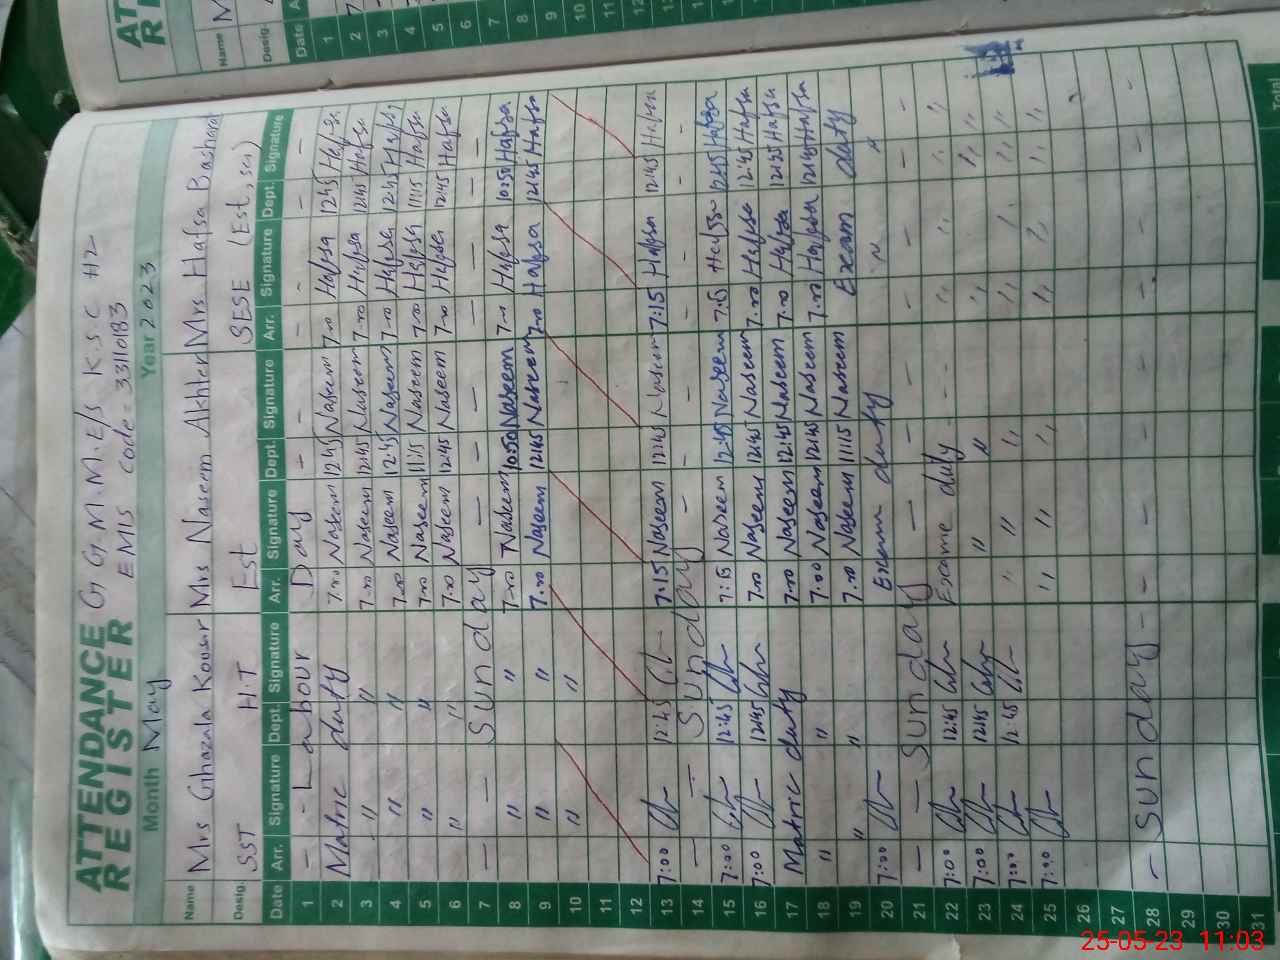 ATTENDANCE REGISTER
G G M.M.E/S K.S.C H2
EMIS Code = 33110183
Month May Year 2023
Name Mrs Ghazala Kousar Mrs Naseem Akhter Mrs Hafsa Basharat
Desig. SST H.T Est SESE (Est, sci)
Date Arr. Signature Dept. Signature Arr. Signature Dept. Signature Arr. Signature Dept. Signature
1 - - Labour Day - - - - - -
2 Matric duty 7:00 Naseem 12:45 Naseem 7:00 Hafsa 12:45 Hafsa
3 " " 7:00 Naseem 12:45 Naseem 7:00 Hafsa 12:45 Hafsa
4 " " 7:00 Naseem 12:45 Naseem 7:00 Hafsa 12:45 Hafsa
5 " " 7:00 Naseem 11:15 Naseem 7:00 Hafsa 11:15 Hafsa
6 " " 7:00 Naseem 12:45 Naseem 7:00 Hafsa 12:45 Hafsa
7 - - Sunday - - - - - -
8 " " 7:00 Naseem 10:50 Naseem 7:00 Hafsa 10:50 Hafsa
9 " " 7:00 Naseem 12:45 Naseem 7:00 Hafsa 12:45 Hafsa
10 " "
11
12
13 7:00 12:45 7:15 Naseem 12:45 Naseem 7:15 Hafsa 12:45 Hafsa
14 - - Sunday - - - - - -
15 7:00 12:45 7:15 Naseem 12:45 Naseem 7:15 Hafsa 12:45 Hafsa
16 7:00 12:45 7:00 Naseem 12:45 Naseem 7:00 Hafsa 12:45 Hafsa
17 Matric duty 7:00 Naseem 12:45 Naseem 7:00 Hafsa 12:45 Hafsa
18 " " 7:00 Naseem 12:45 Naseem 7:00 Hafsa 12:45 Hafsa
19 " " 7:00 Naseem 11:15 Naseem Exam duty
20 7:00 Exam duty " "
21 - - Sunday - - - - - -
22 7:00 12:45 Exame duty - - " " " "
23 7:00 12:45 " " " " "
24 7:00 12:45 " " " " " " "
25 7:00 " " " " " " "
26
27
28 - Sunday - - - - - - -
29
30
31
Total
ATT
RE
Name M
Desig.
Date A
1
2
3
4
5
6
7
8
9
10
11
12
25-05-23 11:03